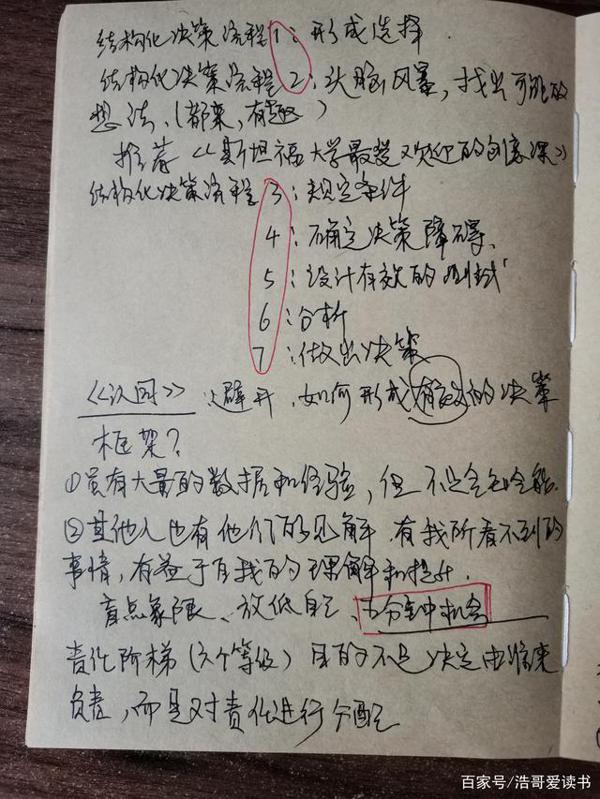 结构化决策流程1：形成选择.
结构化决策流程2：头脑风暴，找出可能的
想法、（都来，有趣）
推荐《斯坦福大学最受欢迎的创意课》
结构化决策流程3：规定条件
4：确定决策障碍、
5：设计有效的测试
6：分析
7：做出决策
《认同》：避开、如何形成有效的决策
框架？
①虽有大量的数据和经验，但不是全知全能.
②其他人也有他们的见解.有我所看不到的
事情，有益于自我的理解和提升.
盲点象限、放低自己、五分钟机会
责任阶梯（六个等级）目的不是决定由谁来
负责，而是对责任进行分配
百家号/浩哥爱读书